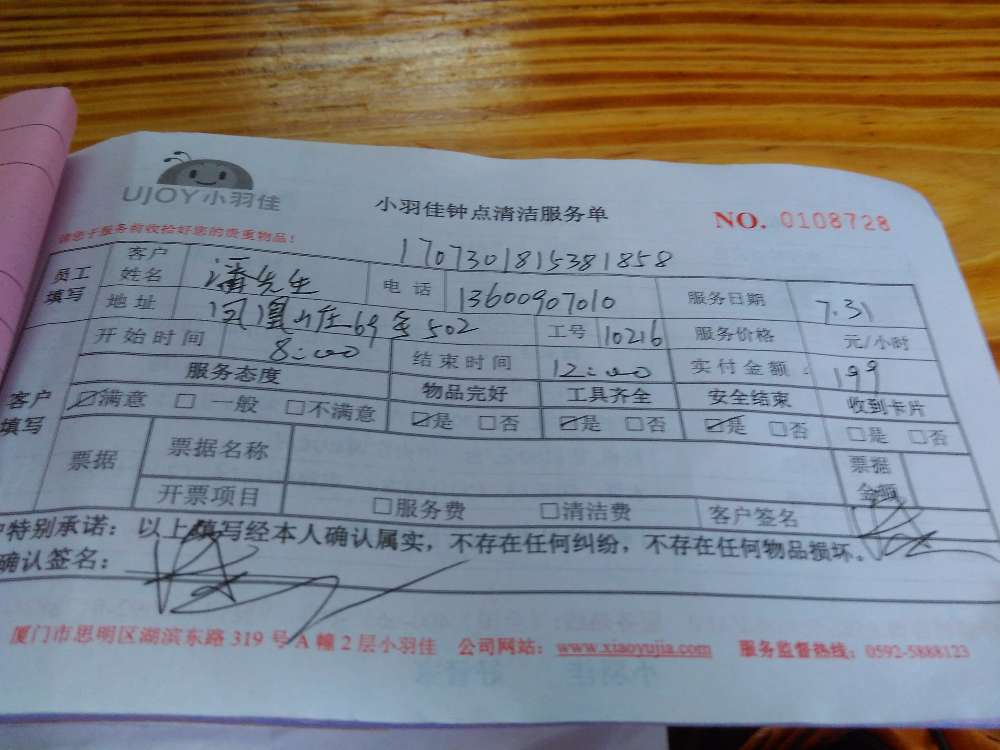 UJOY小羽佳
小羽佳钟点清洁服务单
NO. 0108728
请您于服务前收拾好您的贵重物品!
1707301815381858
员工填写 客户姓名 潘先生 电话 13600907010 服务日期 7.31
地址 凤凰山庄69号502 工号 10216 服务价格 元/小时
开始时间 8:00 结束时间 12:00 实付金额: 199
客户填写 服务态度 物品完好 工具齐全 安全结束 收到卡片
☑满意 □ 一般 □不满意 ☑是 □否 ☑是 □否 ☑是 □否 □是 □否
票据 票据名称 票据金额
开票项目 □服务费 □清洁费 客户签名
户特别承诺:以上填写经本人确认属实,不存在任何纠纷,不存在任何物品损坏。
确认签名:
厦门市思明区湖滨东路 319 号 A 幢 2 层小羽佳 公司网站:www.xiaoyujia.com 服务监督热线:0592-5888123